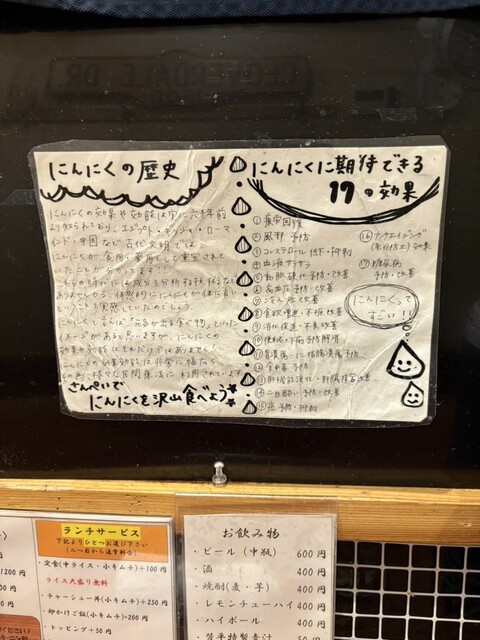 CLOVERDALE DR.
にんにくの歴史
にんにくの効果や効能は実に六千年前
より知られており、エジプト・ギリシャ・ローマ
インド・中国など古代文明では
にんにくが食用、薬用として重宝されて
にんにくというと「元気が出る食べ物」といった
イメージがあると思いますが、にんにくの
さんぺいで
にんにくを沢山食べよう
にんにくに期待できる
17の効果
①疲労回復
②風邪予防
③コレステロール低下・抑制
④血液サラサラ
⑤動脈硬化予防・改善
⑥高血圧予防・改善
⑦冷え性改善
⑧食欲増進・不振改善
⑨消化促進・不良改善
⑩便秘・下痢予防解消
⑫食中毒予防
⑬肝機能強化・肝機能障害改善
⑭二日酔い予防・改善
⑮癌予防・抑制
⑯アンチエイジング
(老化防止)効果
⑰糖尿病
予防・改善
にんにくって
すごい!!
ランチサービス
下記よりひとつお選び下さい
(二つ目から通常料金)
・定食(中ライス・小キムチ)+100円
ライス大盛り無料
・チャーシュー丼(小キムチ)+250円
・卵かけご飯(小キムチ)+200円
・トッピング+50円
1200円
お飲み物
・ビール(中瓶) 600円
・酒 400円
・焼酎(麦・芋) 400円
・レモンチューハイ 400円
・ハイボール 400円